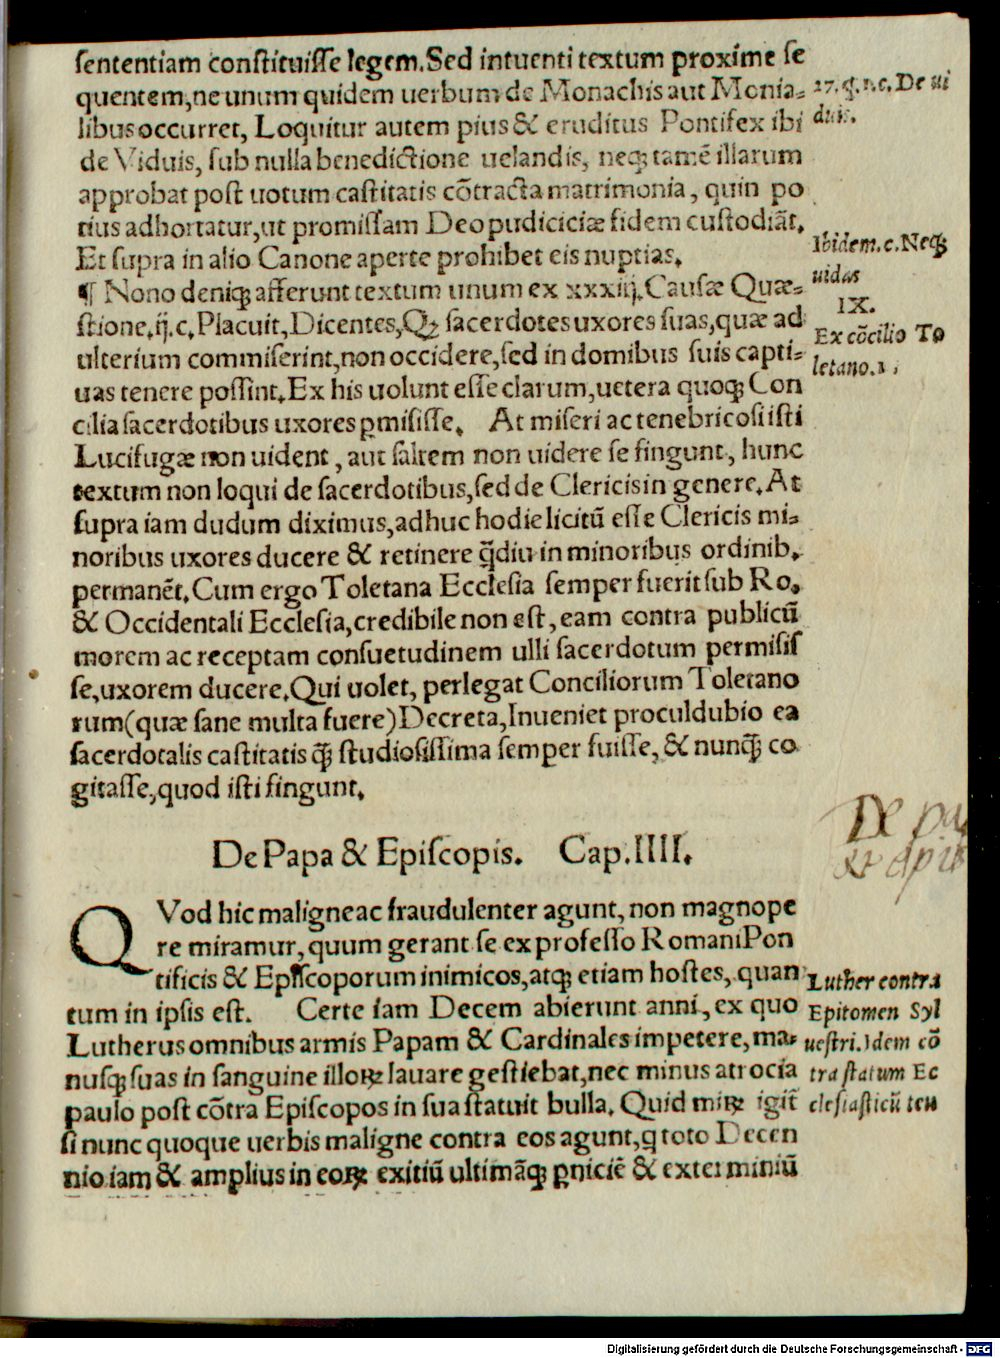 sententiam constituisse legem. Sed intuenti textum proxime se
quentem, ne unum quidem uerbum de Monachis aut Monia-
libus occurret, Loquitur autem pius & eruditus Pontifex ibi
de Viduis, sub nulla benedictione uelandis, neqꝫ tamē illarum
approbat post uotum castitatis cōtracta matrimonia, quin po
tius adhortatur, ut promissam Deo pudiciciæ fidem custodiāt.
Et supra in alio Canone aperte prohibet eis nuptias.
¶ Nono deniqꝫ afferunt textum unum ex xxxiij. Causæ Quæ-
stione. ij. c. Placuit, Dicentes, Qꝫ sacerdotes uxores suas, quæ ad
ulterium commiserint, non occidere, sed in domibus suis capti-
uas tenere possint. Ex his uolunt esse clarum, uetera quoqꝫ Con
cilia sacerdotibus uxores ꝑmisisse. At miseri ac tenebricosi isti
Lucifugæ non uident, aut saltem non uidere se fingunt, hunc
textum non loqui de sacerdotibus, sed de Clericis in genere. At
supra iam dudum diximus, adhuc hodie licitū esse Clericis mi-
noribus uxores ducere & retinere q̄diu in minoribus ordinib.
permanēt. Cum ergo Toletana Ecclesia semper fuerit sub Ro.
& Occidentali Ecclesia, credibile non est, eam contra publicū
morem ac receptam consuetudinem ulli sacerdotum permisis
se, uxorem ducere. Qui uolet, perlegat Conciliorum Toletano
rum (quæ sane multa fuere) Decreta, Inueniet proculdubio ea
sacerdotalis castitatis q̄ꝫ studiosissima semper fuisse, & nunq̄ꝫ co
gitasse, quod isti fingunt.
27. q. 1. c. De ui
duis.
Ibidem. c. Neqꝫ
uidas
IX.
Ex cōcilio To
letano. 1
De Papa & Episcopis. Cap. IIII.
De pa
& epis
QVod hic maligne ac fraudulenter agunt, non magnope
re miramur, quum gerant se ex professo Romani Pon
tificis & Episcoporum inimicos, atqꝫ etiam hostes, quan
tum in ipsis est. Certe iam Decem abierunt anni, ex quo
Lutherus omnibus armis Papam & Cardinales impetere, ma-
nusqꝫ suas in sanguine illoꝝ lauare gestiebat, nec minus atrocia
paulo post cōtra Episcopos in sua statuit bulla. Quid miꝝ igit̄
si nunc quoque uerbis maligne contra eos agunt, q toto Decen
nio iam & amplius in eoꝝ exitiū ultimāqꝫ ꝑniciē & exterminiū
Luther contra
Epitomen Syl
uestri. Idem cō
tra statum Ec
clesiasticū teu
Digitalisierung gefördert durch die Deutsche Forschungsgemeinschaft - DFG